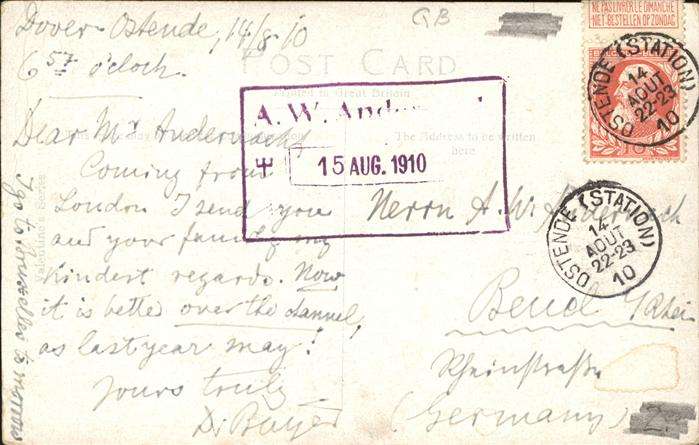 Dover-Ostende, 14/8.10
6 57 o'clock.
GB
NE PAS LIVRER LE DIMANCHE
NIET BESTELLEN OP ZONDAG
POST CARD
Printed in Great Britain
The Address to be written
here
Valentine's Series
A. W. Ander
15 AUG. 1910
OSTENDE (STATION)
14
AOUT
22-23
10
OSTENDE (STATION)
14
AOUT
22-23
10
Dear Mr Andernach
Coming from
London I send you
and your family my
kindest regards. Now
it is better over the channel,
as last year may!
Yours truly
I go to Bruxelles to morrow
Herrn A. W. Andernach
Beuel a/Rhein
Rheinstraße
(Germany)